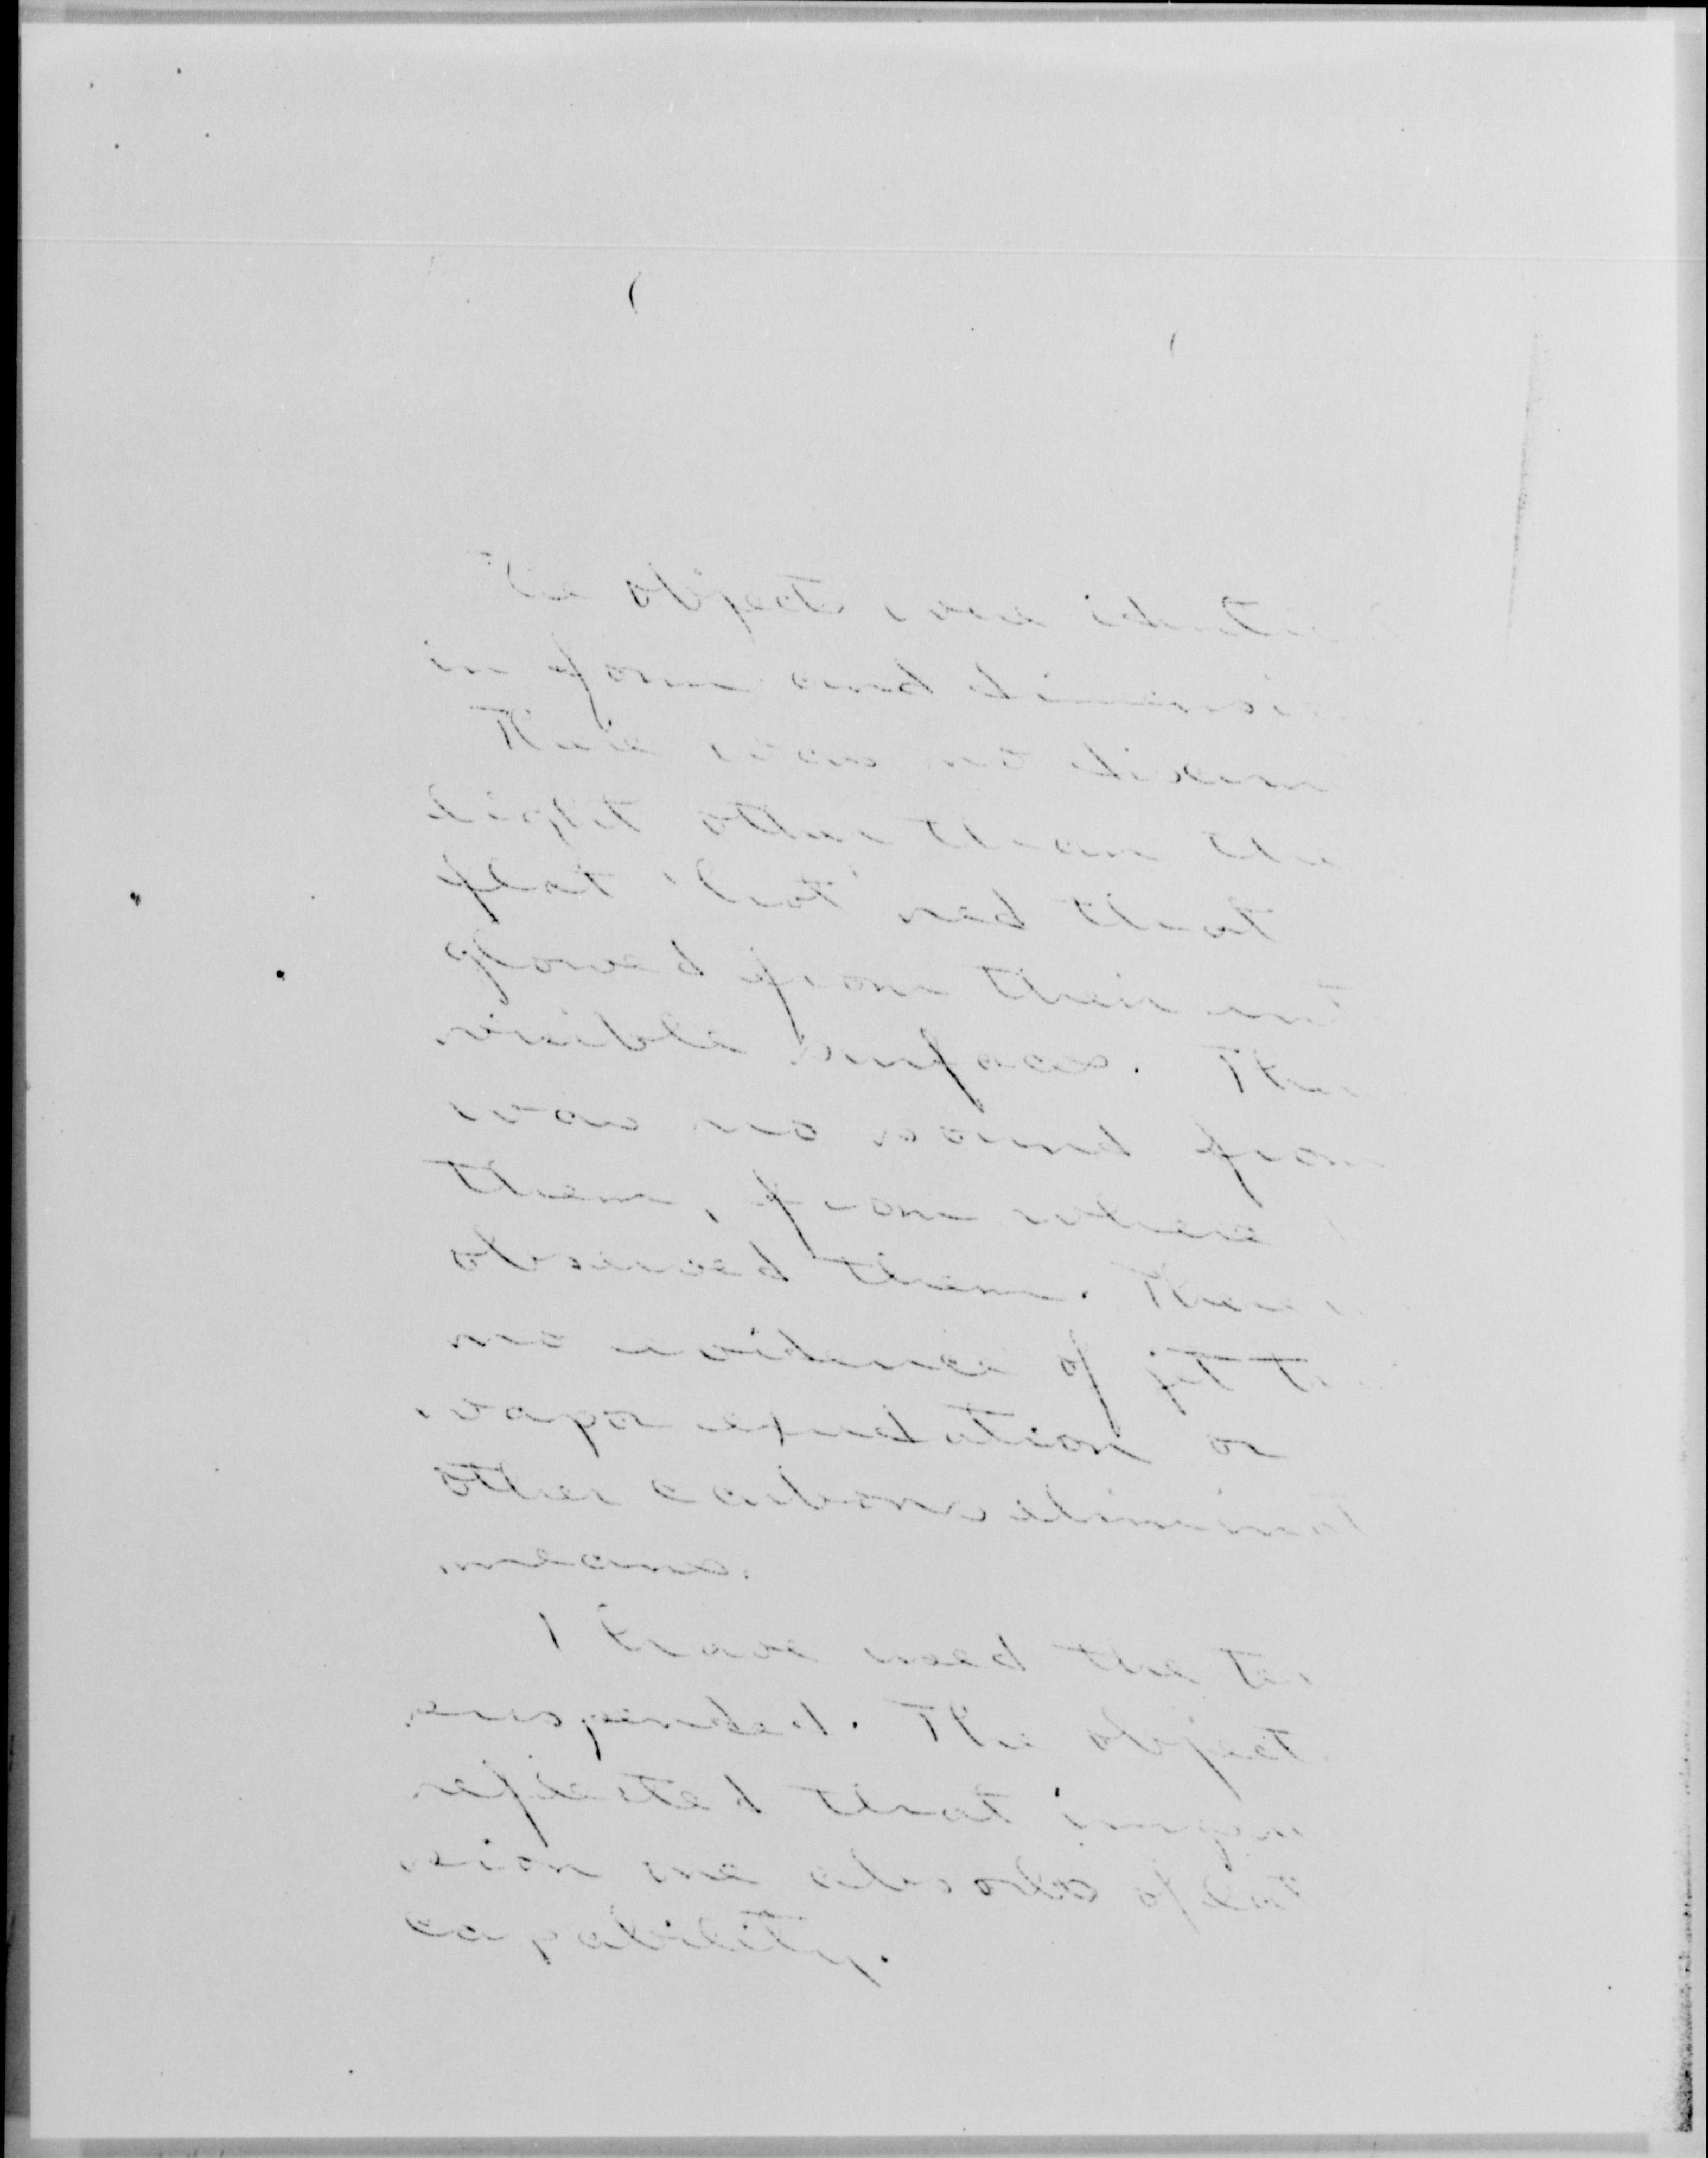 The objects were identi
in form and dimensi
There was no discern
light other than the
flat 'hot' red that
glowed from their ent
visible surfaces. The
was no sound from
them, from where I
observed them. There
no evidence of jet t
vapor exudation or
other carbon eliminat
means.
I have used the te
suspended. The object
reflected that impres
sion and also of
capability.